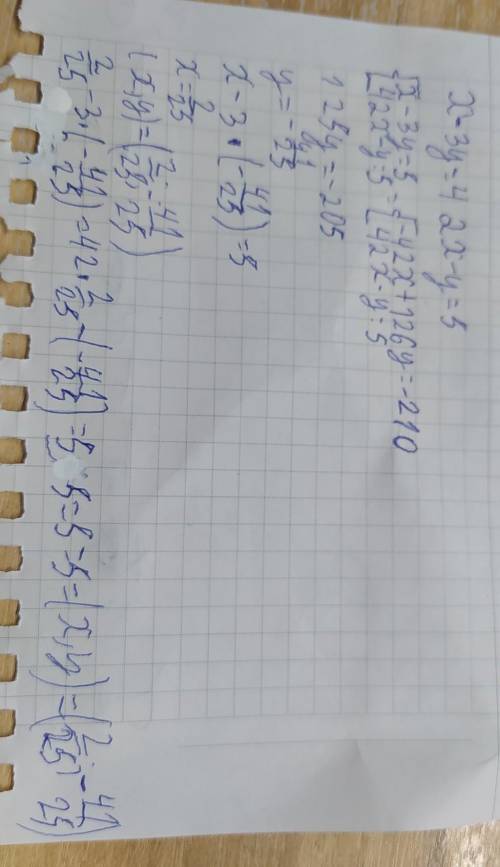 x-3y=4 2x-y=5
[x-3y=5 [-42x+126y=-210
[42x-y=5 = [42x-y=5
125y=-205
y=-41/25
x-3·(-41/25)=5
x=2/25
(x,y)=(2/25;-41/25)
2/25-3·(-41/25)=42·2/25-(-41/25)=5 5=5-5=(x,y)=(2/25;-41/25)